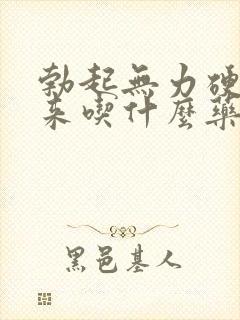 勃起無力硬
来喫什麼藥
黑邑基人